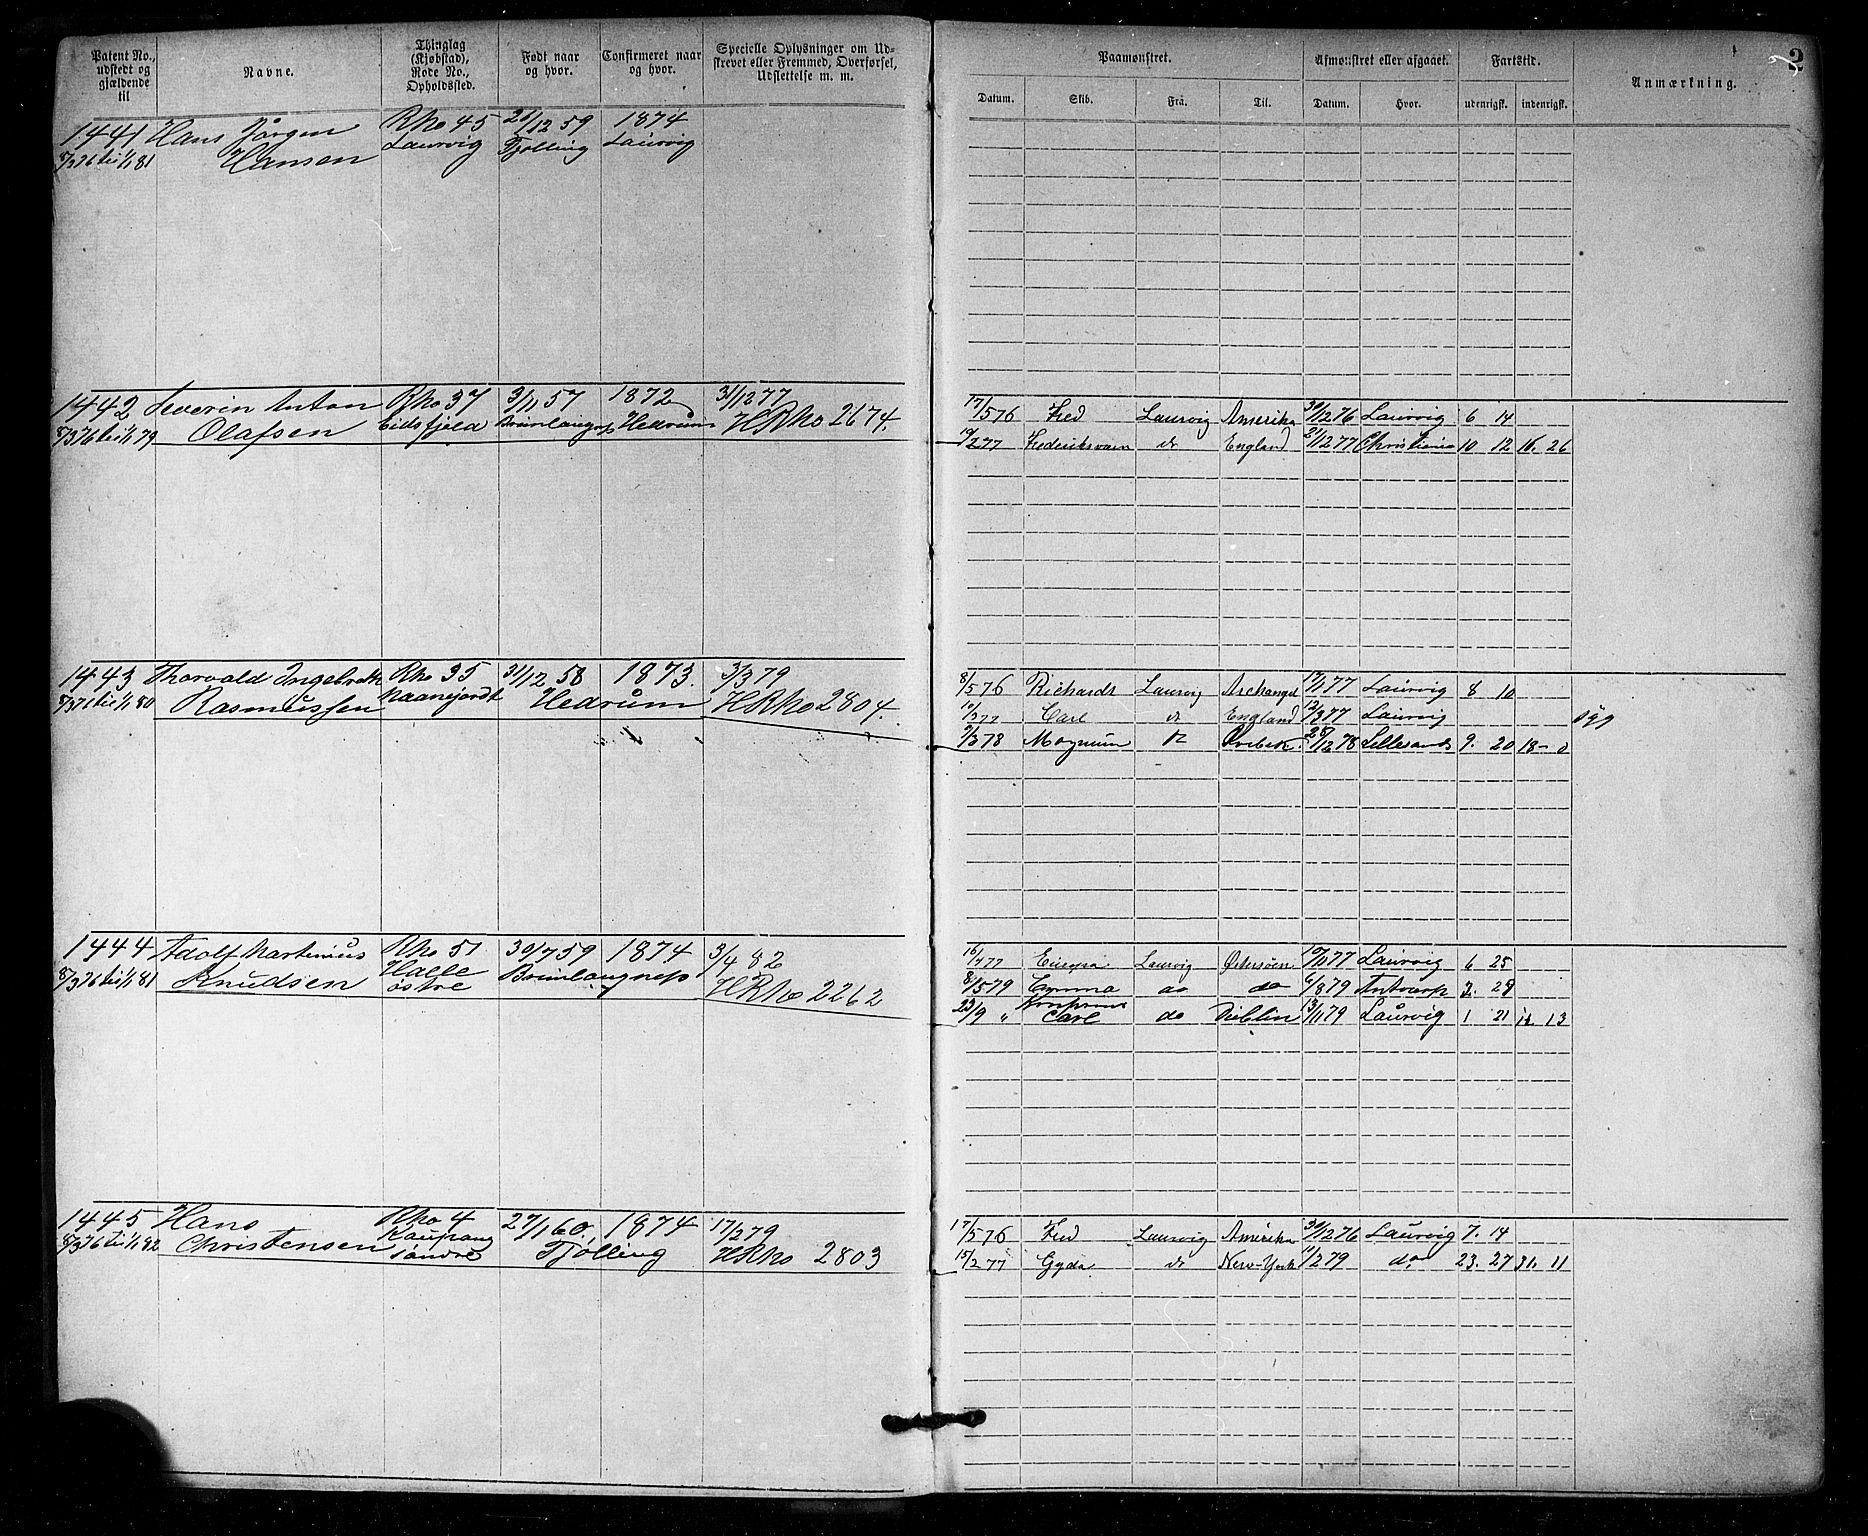 Patent No., udstedt og gjældende til
Navne.
Thinglag (Kjøbstad), Rode No., Opholdssted.
Født naar og hvor.
Confirmeret naar og hvor.
Specielle Oplysninger om Udskrevet eller Fremmed, Overførsel, Udslettelse m. m.
Paamønstret.
Afmønstret eller afgaaet.
Fartstid.
Anmærkning.
2
Datum. Skib. Fra. Til. Datum. Hvor. udenrigsk. indenrigsk.
1441 Hans Jørgen Rno 45 26/12 59 1874
8/3 76 til 1/1 81 Hansen Laurvig Tjølling Laurvig
1442 Severin Anton Rno 37 3/11 57 1872 31/12 77
8/3 76 til 1/1 79 Olafsen Eidsfjeld Brunlangnæs Hedrum HRno 2674.
17/5 76 Fred Laurvig Amerika 30/12 76 Laurvig 6 14
19/2 77 Frederiksværn do England 21/12 77 Christiania 10 12 16. 26
1443 Thorvald Ingebreth Rno 35 31/12 58 1873. 3/3 79
8/3 76 til 1/1 80 Rasmussen Naanejordt Hedrum HRno 2804.
8/5 76 Richards Laurvig Archangel 17/1 77 Laurvig 8 10
10/2 77 Carl do England 12/3 77 Laurvig syg
9/3 78 Magnum do 28/12 78 Lillesand 9. 20 18 - 0
1444 Adolf Martinius Rno 51 30/7 59 1874 3/4 82
8/3 76 til 1/1 81 Knudsen Halle østre Brunlangnæs HRno 2262
16/4 77 Europa Laurvig Østersøen 10/11 77 Laurvig 6 25
8/5 79 Emma do do 6/8 79 Antwerp 2. 28
23/9 " Kronprins Carl do Dublin 13/11 79 Laurvig 1 21 11 13
1445 Hans Rno 4 27/1 60. 1874 17/2 79
8/3 76 til 1/1 82 Christensen Kaupang søndre Tjølling HRno 2803
17/5 76 Fred Laurvig Amerika 30/12 76 Laurvig 7. 14
15/2 77 Gyda do New-York 11/2 79 do 23. 27 31. 11